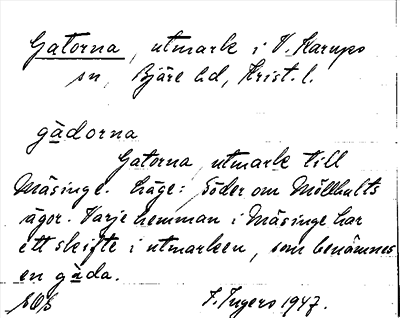 Gatorna, utmark i V. Karups
sn, Bjäre hd, Krist. l.
gàdorna
Gatorna, utmark till
Mäsinge. Läge: Söder om Möllhults
ägor. Varje hemman i Mäsinge har
ett skifte i utmarken, som benämnes
en gàda.
F. Ingers 1947.